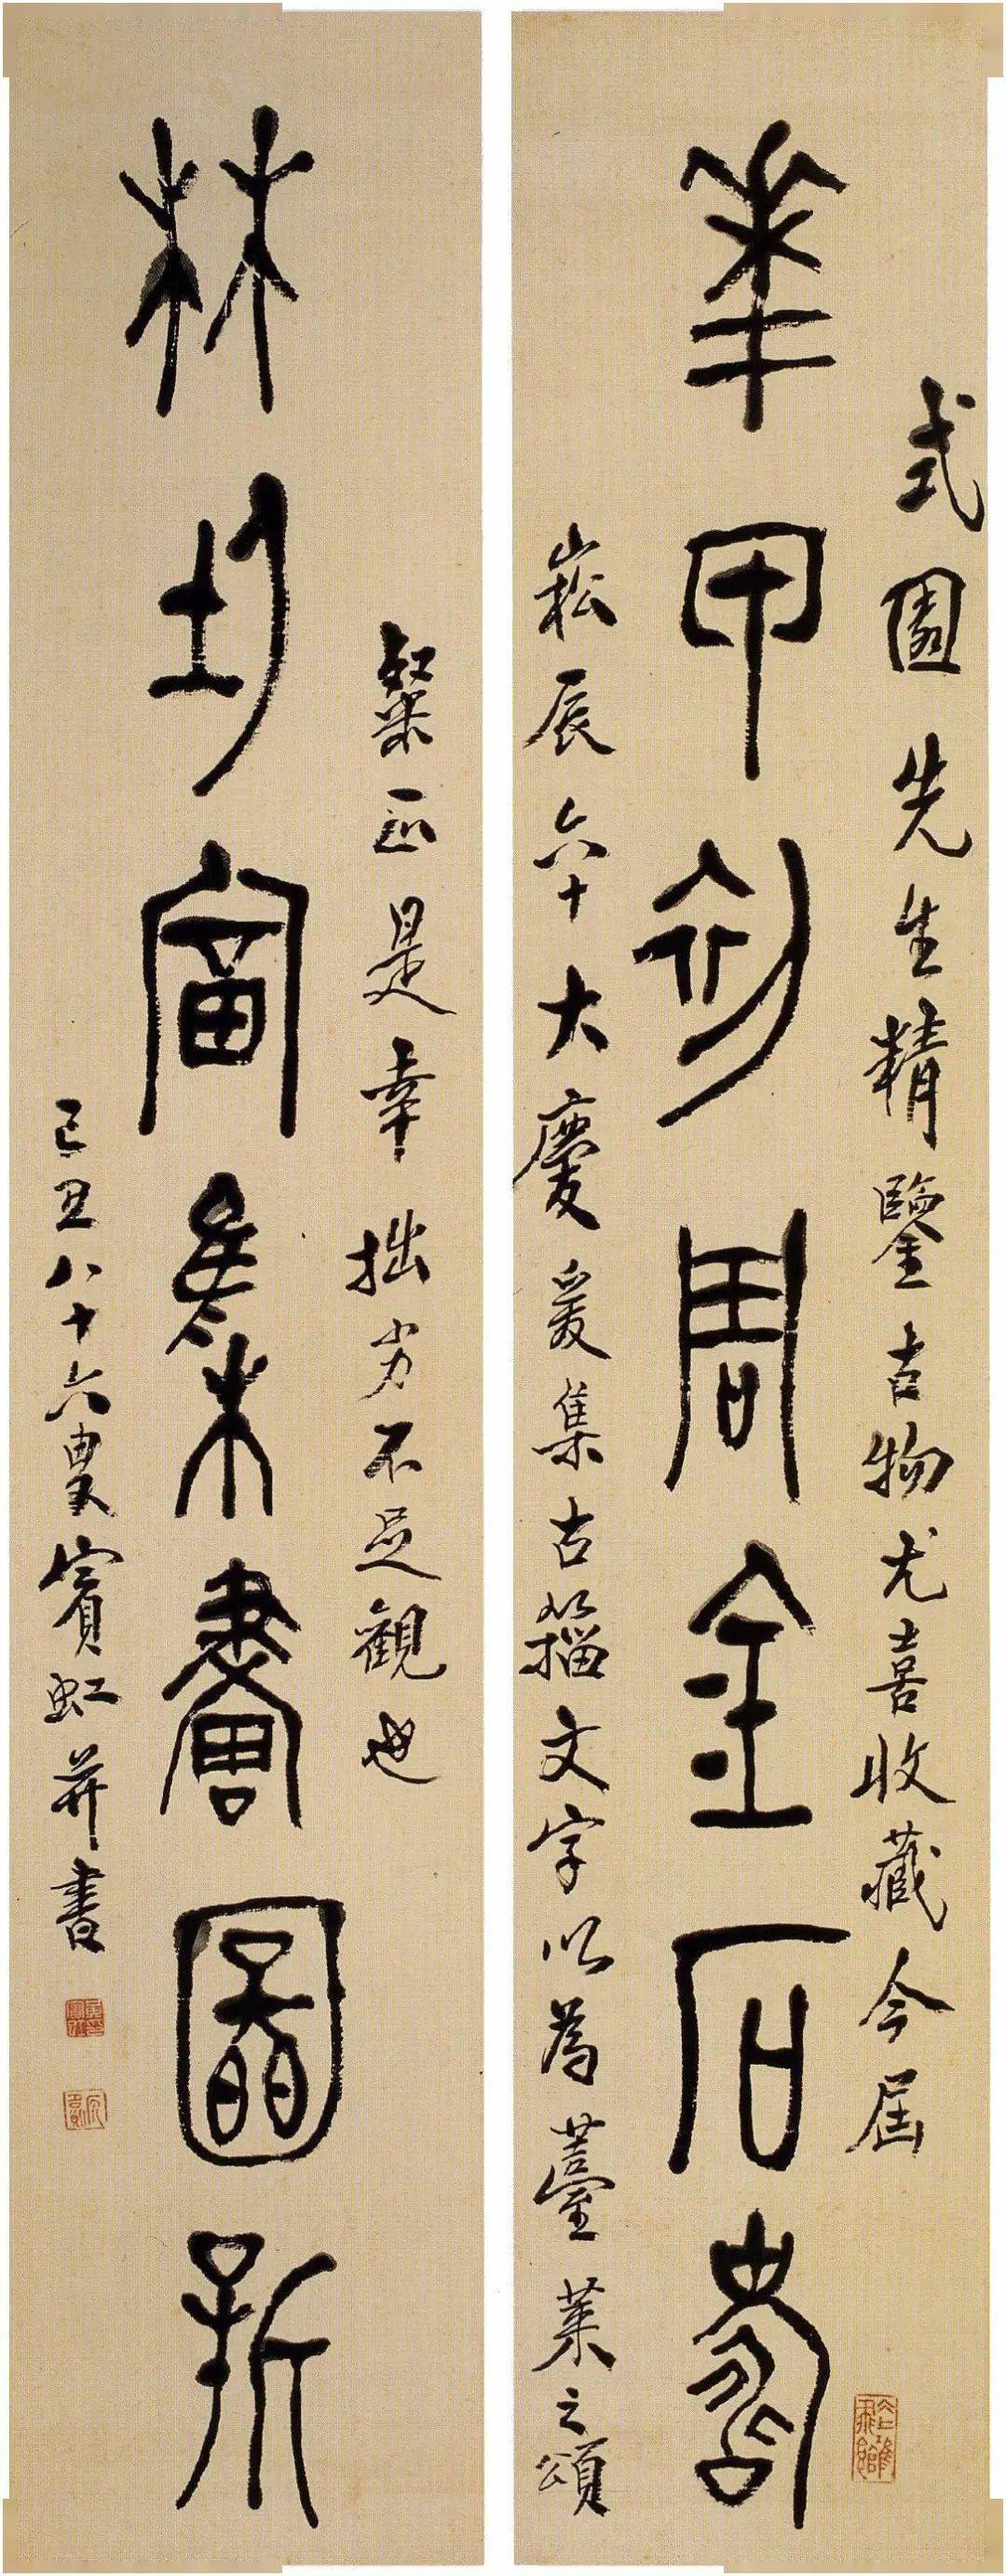 華甲初周金石壽
式園先生精鑒古物尤喜收藏今屆
崧辰六十大慶爰集古籀文字以為薹萊之頌
林富集畫圖新
粲正是幸拙劣不足觀也
己丑八十六叟賓虹并書